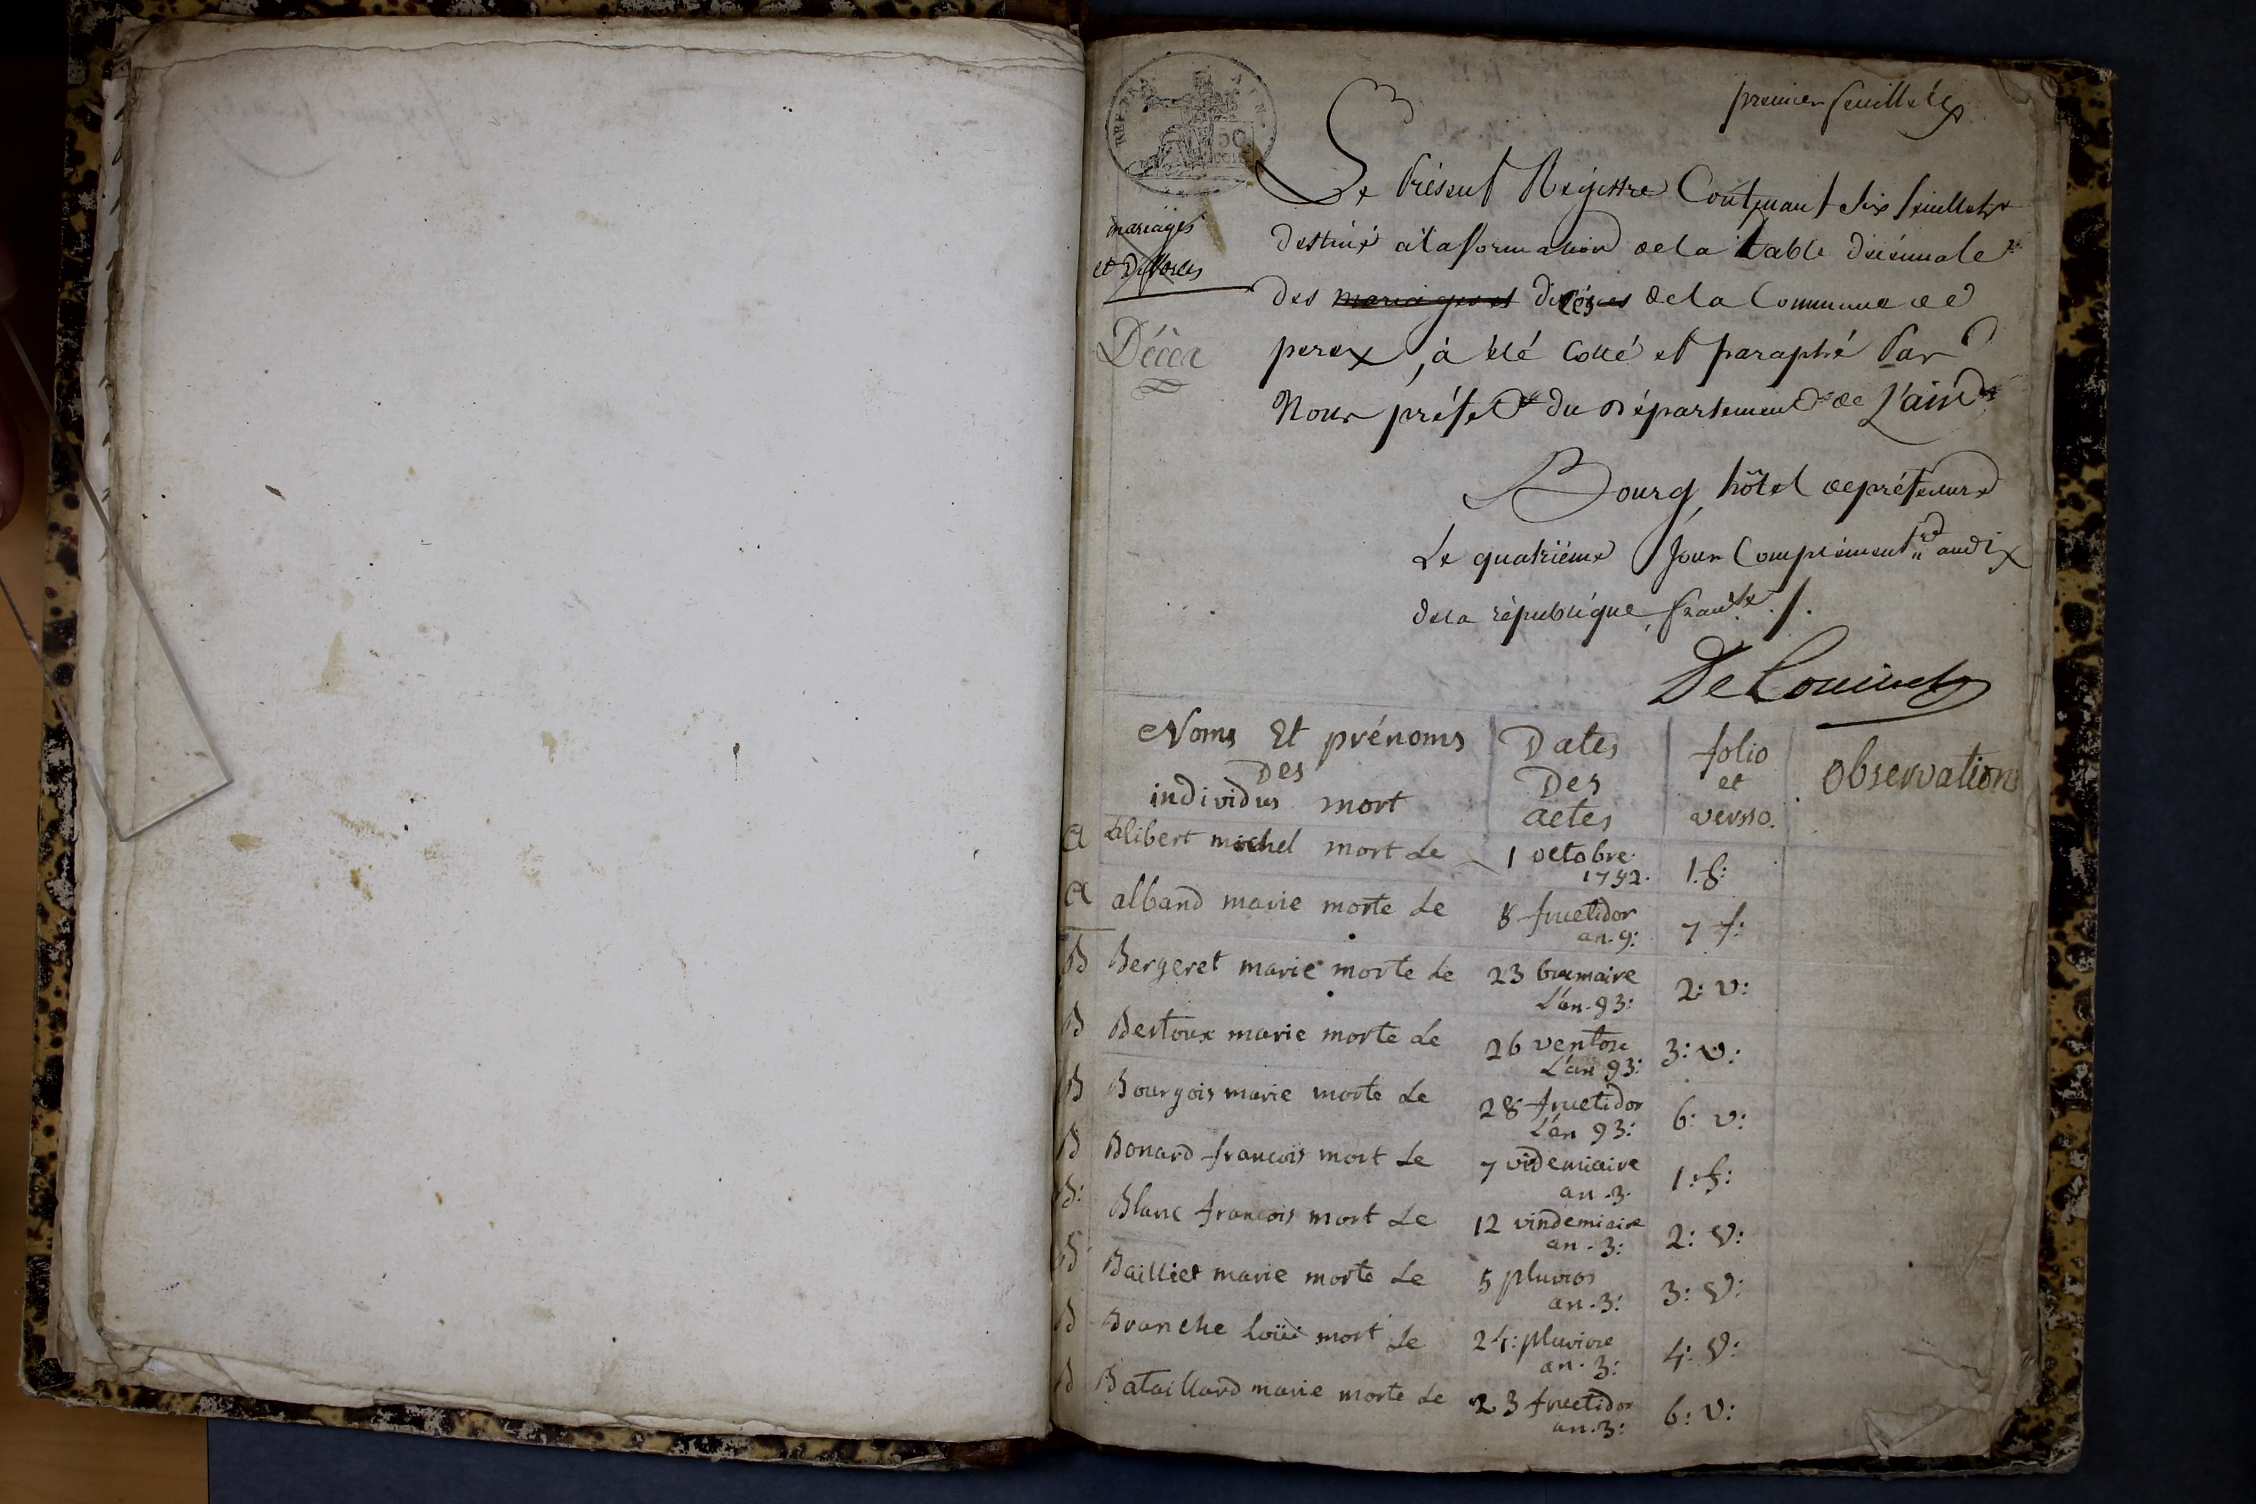 premier feuillet
REP. FRA
50
CENT.
Le Présent Registre Contenant six feuillets
mariages
et Divorces
destiné à la formation de la table décénnale
des mariages et décés de la Commune de
Décèz
perex, à été Cotté et paraphé Par
Nous préfet du Département de L'ain
Bourg, hôtel de préfecture
Le quatriéme Jour Complément.re an dix
de la république franc.se ./.
Noms Et prénoms
Des
individus mort
Dates
Des
actes
folio
et
versso.
Observations
A Alibert michel mort Le 1 octobre 1.f:
1792.
A alband marie morte Le 8 fructidor 7 f:
an.9:
B Bergeret marie morte Le 23 brumaire 2: v:
L'an.93:
B Bertoux marie morte Le 26 ventose 3: v:
L'an 93:
B Bourgois marie morte Le 28 fructidor 6: v:
L'an 93:
B Bonard francois mort Le 7 videmiaire 1:f:
an.3.
B: Blanc francois mort Le 12 vindemiaire 2: v:
an.3:
B Bailliet marie morte Le 5 pluvios 3: v:
an.3:
B Branche Loüi mort Le 24: pluviose 4: v:
an.3:
B Bataillard marie morte Le 23 fructidor 6: v:
an.3: